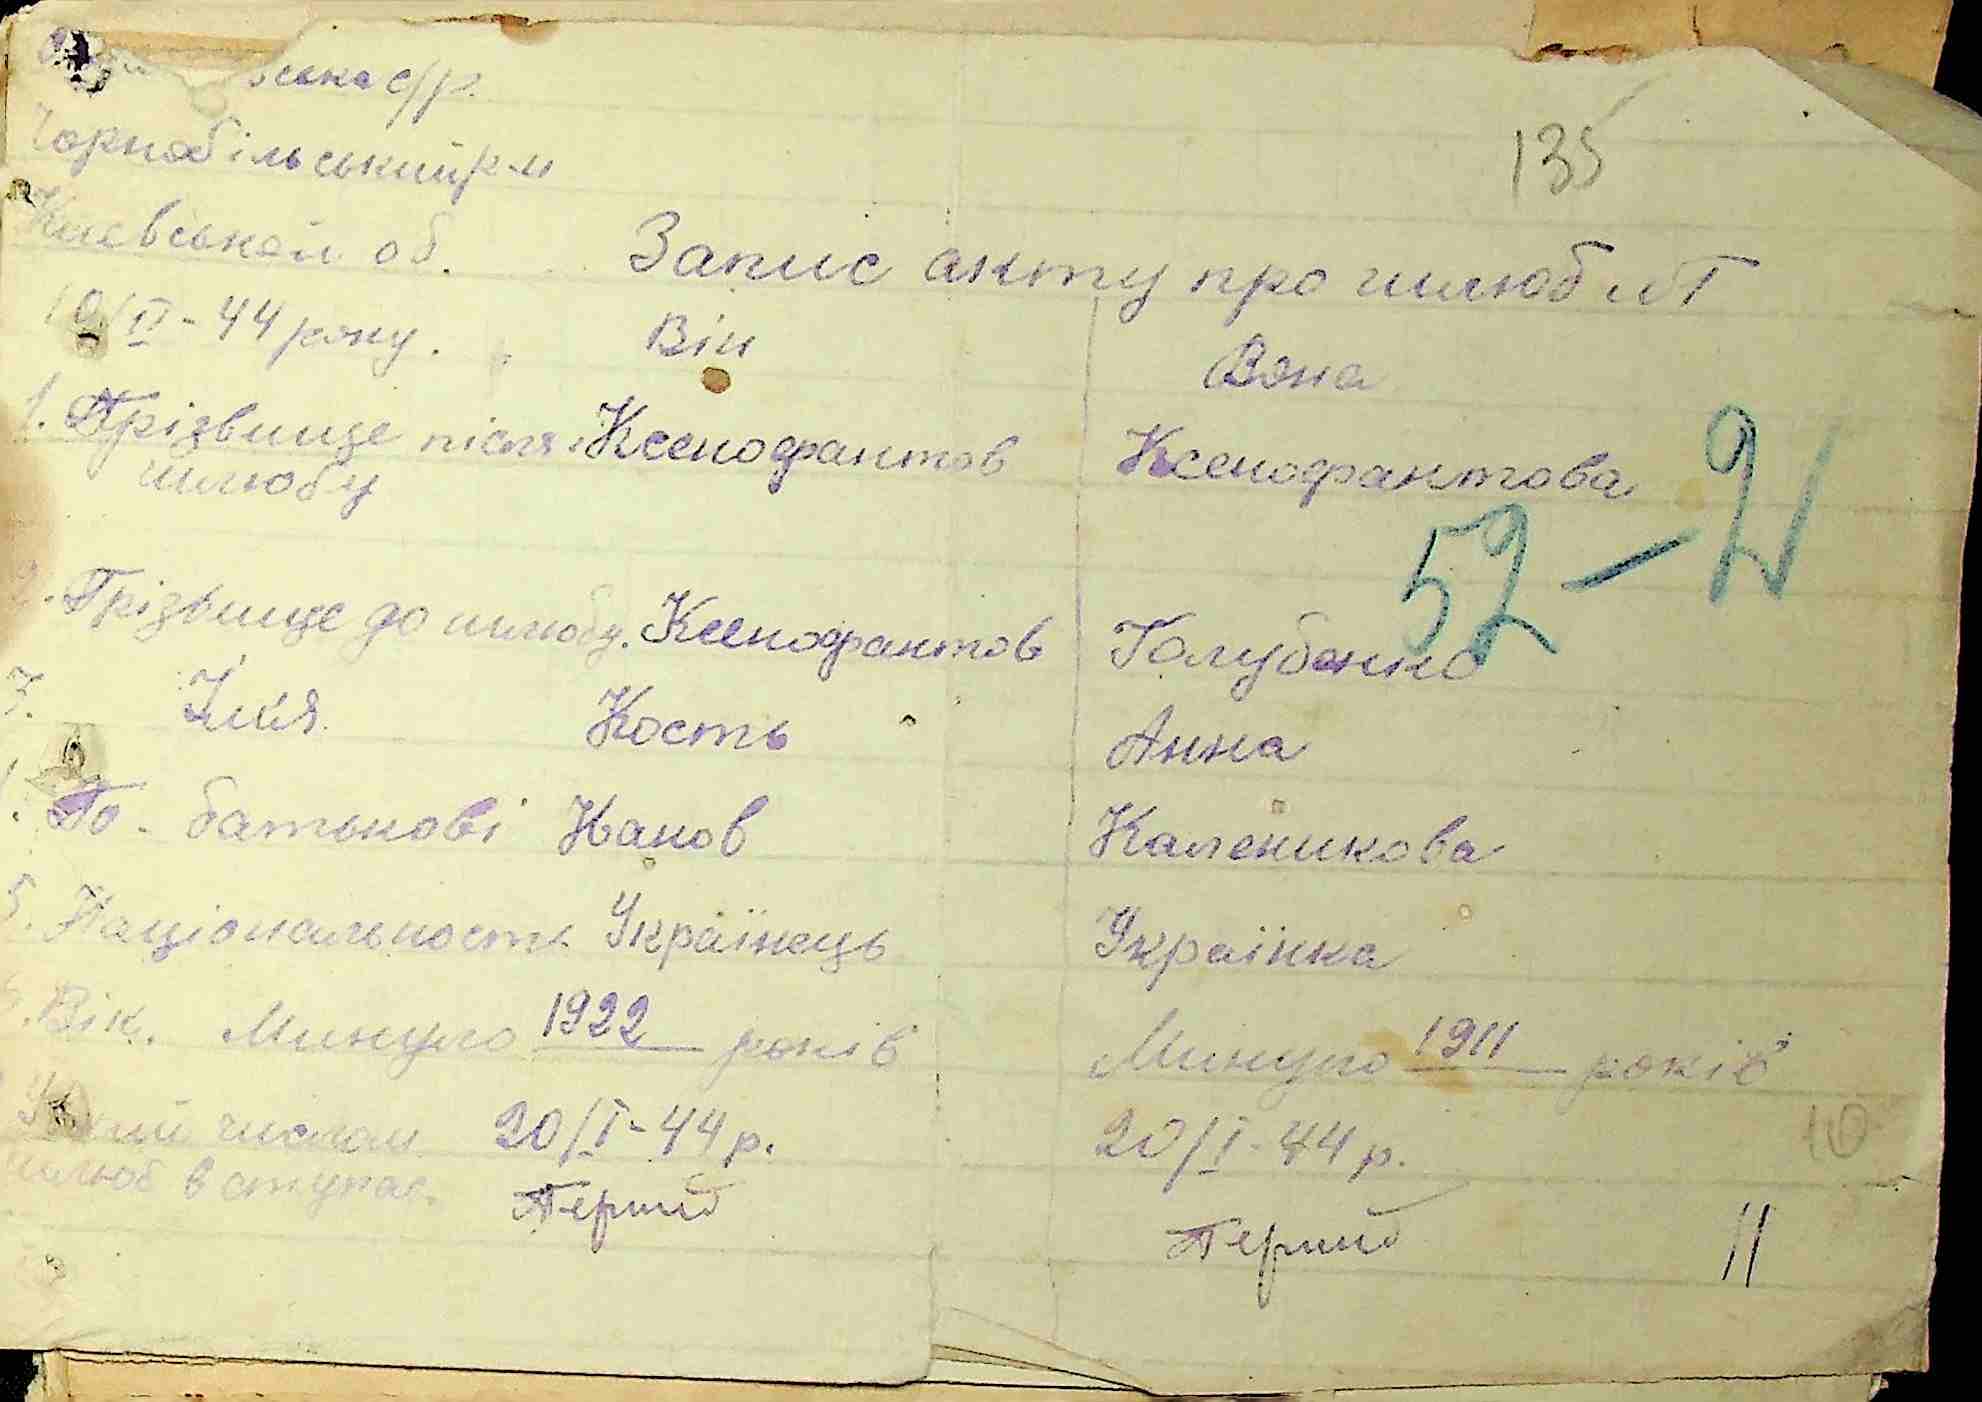 ська с/р.
Чорнобільський р-н
135
Киевськой об.
Запис акту про шлюб №1
10/II-44 року.
Він
Вона
1. Прізвище після шлюбу
Ксенофантов
Ксенофантова
52-21
2. Прізвище до шлюбу.
Ксенофантов
Голубенко
3. Імя
Кость
Анна
По-батькові
Иванов
Каленикова
5. Національность
Українець
Українка
Вік. Минуло 1922 років
Минуло 1911 років
числом
20/I-44 р.
20/I-44 р.
10
шлюб вступає.
Перший
Перший
11